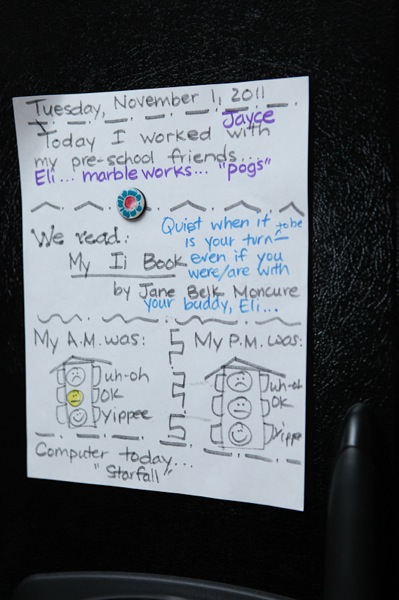 Tuesday, November 1, 2011
Jayce
Today I worked with
my pre-school friends...
Eli... marble works... "pogs"
We read:
My Ii Book
by Jane Belk Moncure
Quiet when it
is your turn to be
even if you
were/are with
your buddy, Eli...
My A.M. was:
uh-oh
OK
Yippee
My P.M. was:
uh-oh
OK
Yippe
Computer today...
"Starfall"